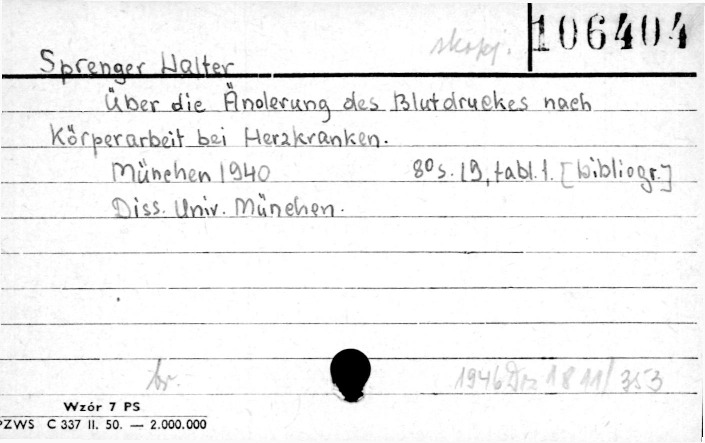 skopj. 106404
Sprenger Walter
Über die Änderung des Blutdruckes nach
Körperarbeit bei Herzkranken.
München 1940 8⁰ s. 19, tabl. 1. [bibliogr.]
Diss. Univ. München.
br. 1946 Drz 18 11/353
Wzór 7 PS
PZWS C 337 II. 50. — 2.000.000